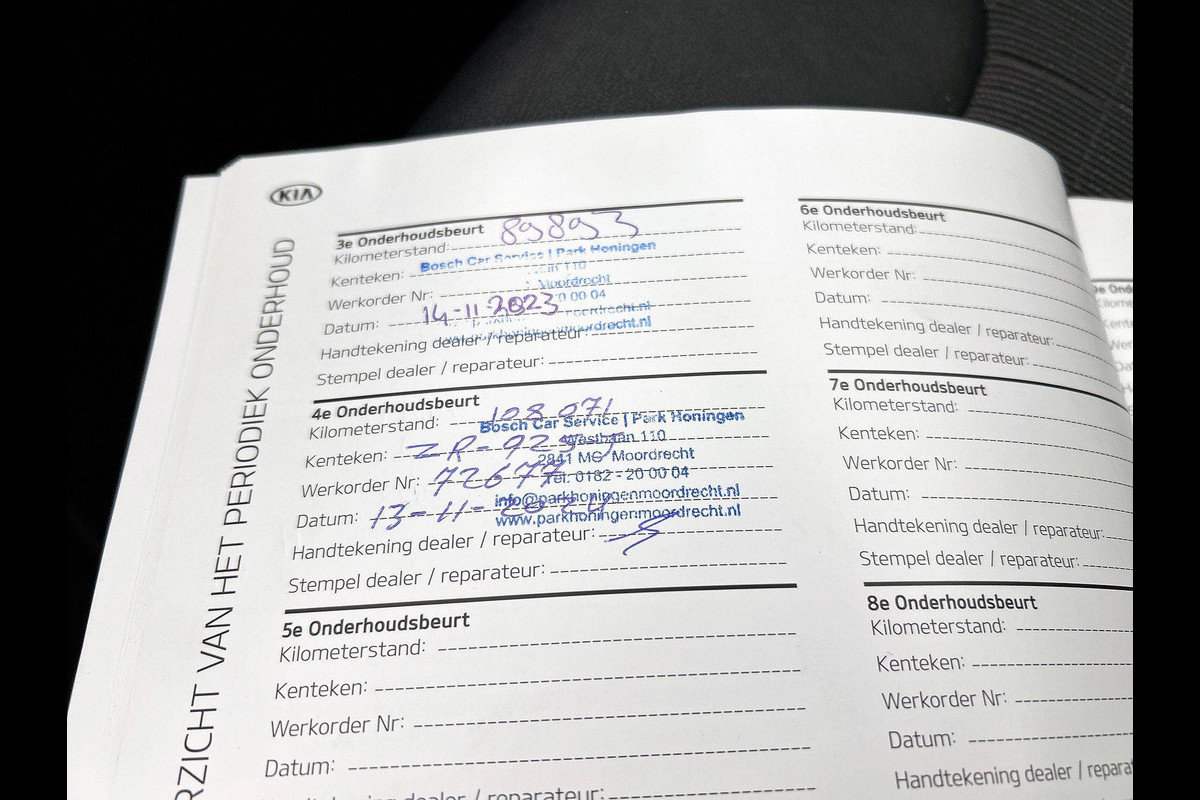 KIA
RZICHT VAN HET PERIODIEK ONDERHOUD
3e Onderhoudsbeurt
Kilometerstand: 89893
Bosch Car Service | Park Honingen
Kenteken:
110
Moordrecht
Werkorder Nr:
0 00 04
Datum: 14-11-2023
Handtekening dealer / reparateur:
Stempel dealer / reparateur:
4e Onderhoudsbeurt
Kilometerstand: 108 071
Bosch Car Service | Park Honingen
Kenteken:
Westbaan 110
2841 MC Moordrecht
Werkorder Nr: 72677
Tel: 0182 - 20 00 04
info@parkhoningenmoordrecht.nl
Datum: 13-11-2024
www.parkhoningenmoordrecht.nl
Handtekening dealer / reparateur:
Stempel dealer / reparateur:
5e Onderhoudsbeurt
Kilometerstand:
Kenteken:
Werkorder Nr:
Datum:
dealer / reparateur:
6e Onderhoudsbeurt
Kilometerstand:
Kenteken:
Werkorder Nr:
Datum:
Handtekening dealer / reparateur:
Stempel dealer / reparateur:
7e Onderhoudsbeurt
Kilometerstand:
Kenteken:
Werkorder Nr:
Datum:
Handtekening dealer / reparateur:
Stempel dealer / reparateur:
8e Onderhoudsbeurt
Kilometerstand:
Kenteken:
Werkorder Nr:
Datum:
Handtekening dealer / repara